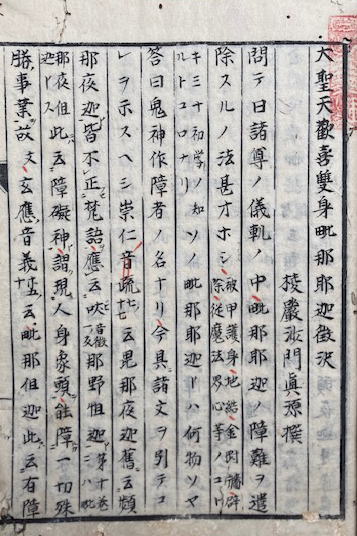 大聖天歡喜雙身毗那耶迦徴決
棱嚴沙門眞源撰
問テ曰諸尊ノ儀軌ノ中毗那耶迦ノ障難ヲ遣
除スルノ法甚オホシ被甲護身地結金剛牆辟除從魔法界心等ノコト
キ三十初学ノ知ソノ毗那耶迦トハ何物ソヤ
ルトコロナリ
答曰鬼神作障者ノ名ナリ今具諸文ヲ引テコ
レヲ示スヘシ崇仁音疏十七云毘那夜迦舊云頻
那夜迦皆不正梵語應云吠那野怛迦第十卷ニハ毗
那夜怛迦此云障礙神謂現人身象頭能障一切殊
勝事業故文玄應音義十五云毗那怛迦此云有障